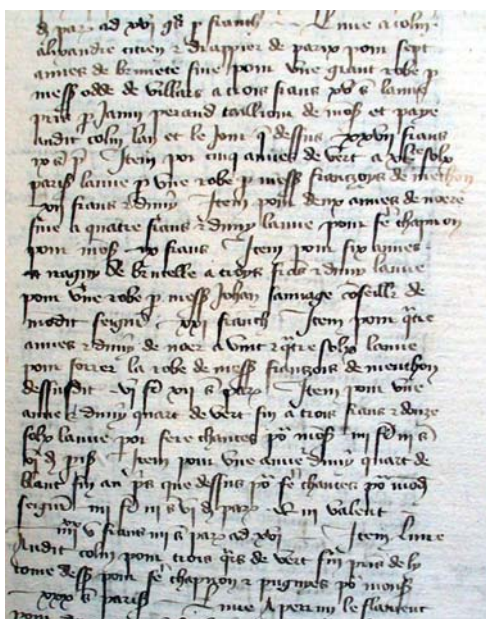 d par ad xvi gs p franch Livre a colin
alixandre citien z drappier de paris pour sept
aunes de brunete fine pour une grant robe p
mess odde de villars a trois frans xv s laune
pris p Jamin perand taillour de mos et paye
audit colin lan et le jour q dessus xxvii frans
ix s p Item por cinq aunes de vert a solz
paris laune p une robe p mess franczoys de menthon
xii frans z dimy Item pour deux aunes de noere
fine a quatre frans z dimy laune pour fe chapiron
pour mos ix frans Item pour six aunes
de brucelle a troys z dimy laune
pour une robe p mess Johan sauvage coseillr de
modit seigneur xxi franch Item pour qtre
aunes z dimy de noer a vint z qtre solz laune
pour forrer la robe de mess franczois de menthon
dessusdit vi fr xii s par Item pour une
aune z dimy quart de vert fin a trois frans z douze
solz laune por fere chauces po mos iiii fr iii s
vi d pris Item pour une aune dimy quart de
blanc fin au pris que dessus po fe chauces po mod
seigneur iiii fr iii s vi d par valent
iiii xx v frans iiii s par ad xvi Item livre
Audit colin pour trois qrs de vert fin pris de ly
come dess pour fe chapiron z pugnies po mons
xxx s paris Livre A perrin le
pour